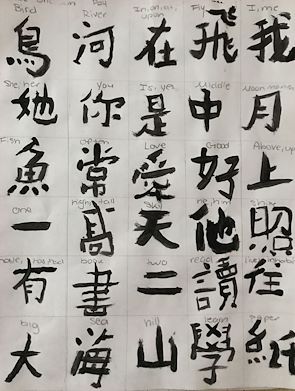 Bird River In, on, at, upon Fly I, me
鳥 河 在 飛 我
She, her You Is, yes Middle
她 你 是 中 月
Fish Often Love Good Above, up
魚 常 愛 好 上
One high, tall sky he, him
一 高 天 他 照
book two read
有 書 二 讀 住
big sea hill learn paper
大 海 山 學 紙